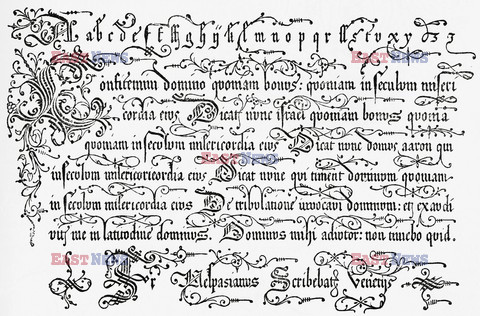 A a b c d e f ff g h g h ij k l m n o p q r s t v x y z z
Confitemini domino quoniam bonus: quoniam in seculum miseri
cordia eius Dicat nunc israel quoniam bonus quonia
quoniam in seculum misericordia eius Dicat nunc domus aaron qm
in seculum misericordia eius Dicat nunc qui timent dominum quoniam
in seculum misericordia eius De tribulatione invocavi dominum: et exaudi
vit me in latitudine dominus. Dominus mihi adiutor: non timebo quid.
Vespasianus Scribebat Venetijs
EAST NEWS
EAST NEWS
EAST NEWS
EAST NEWS
EAST NEWS